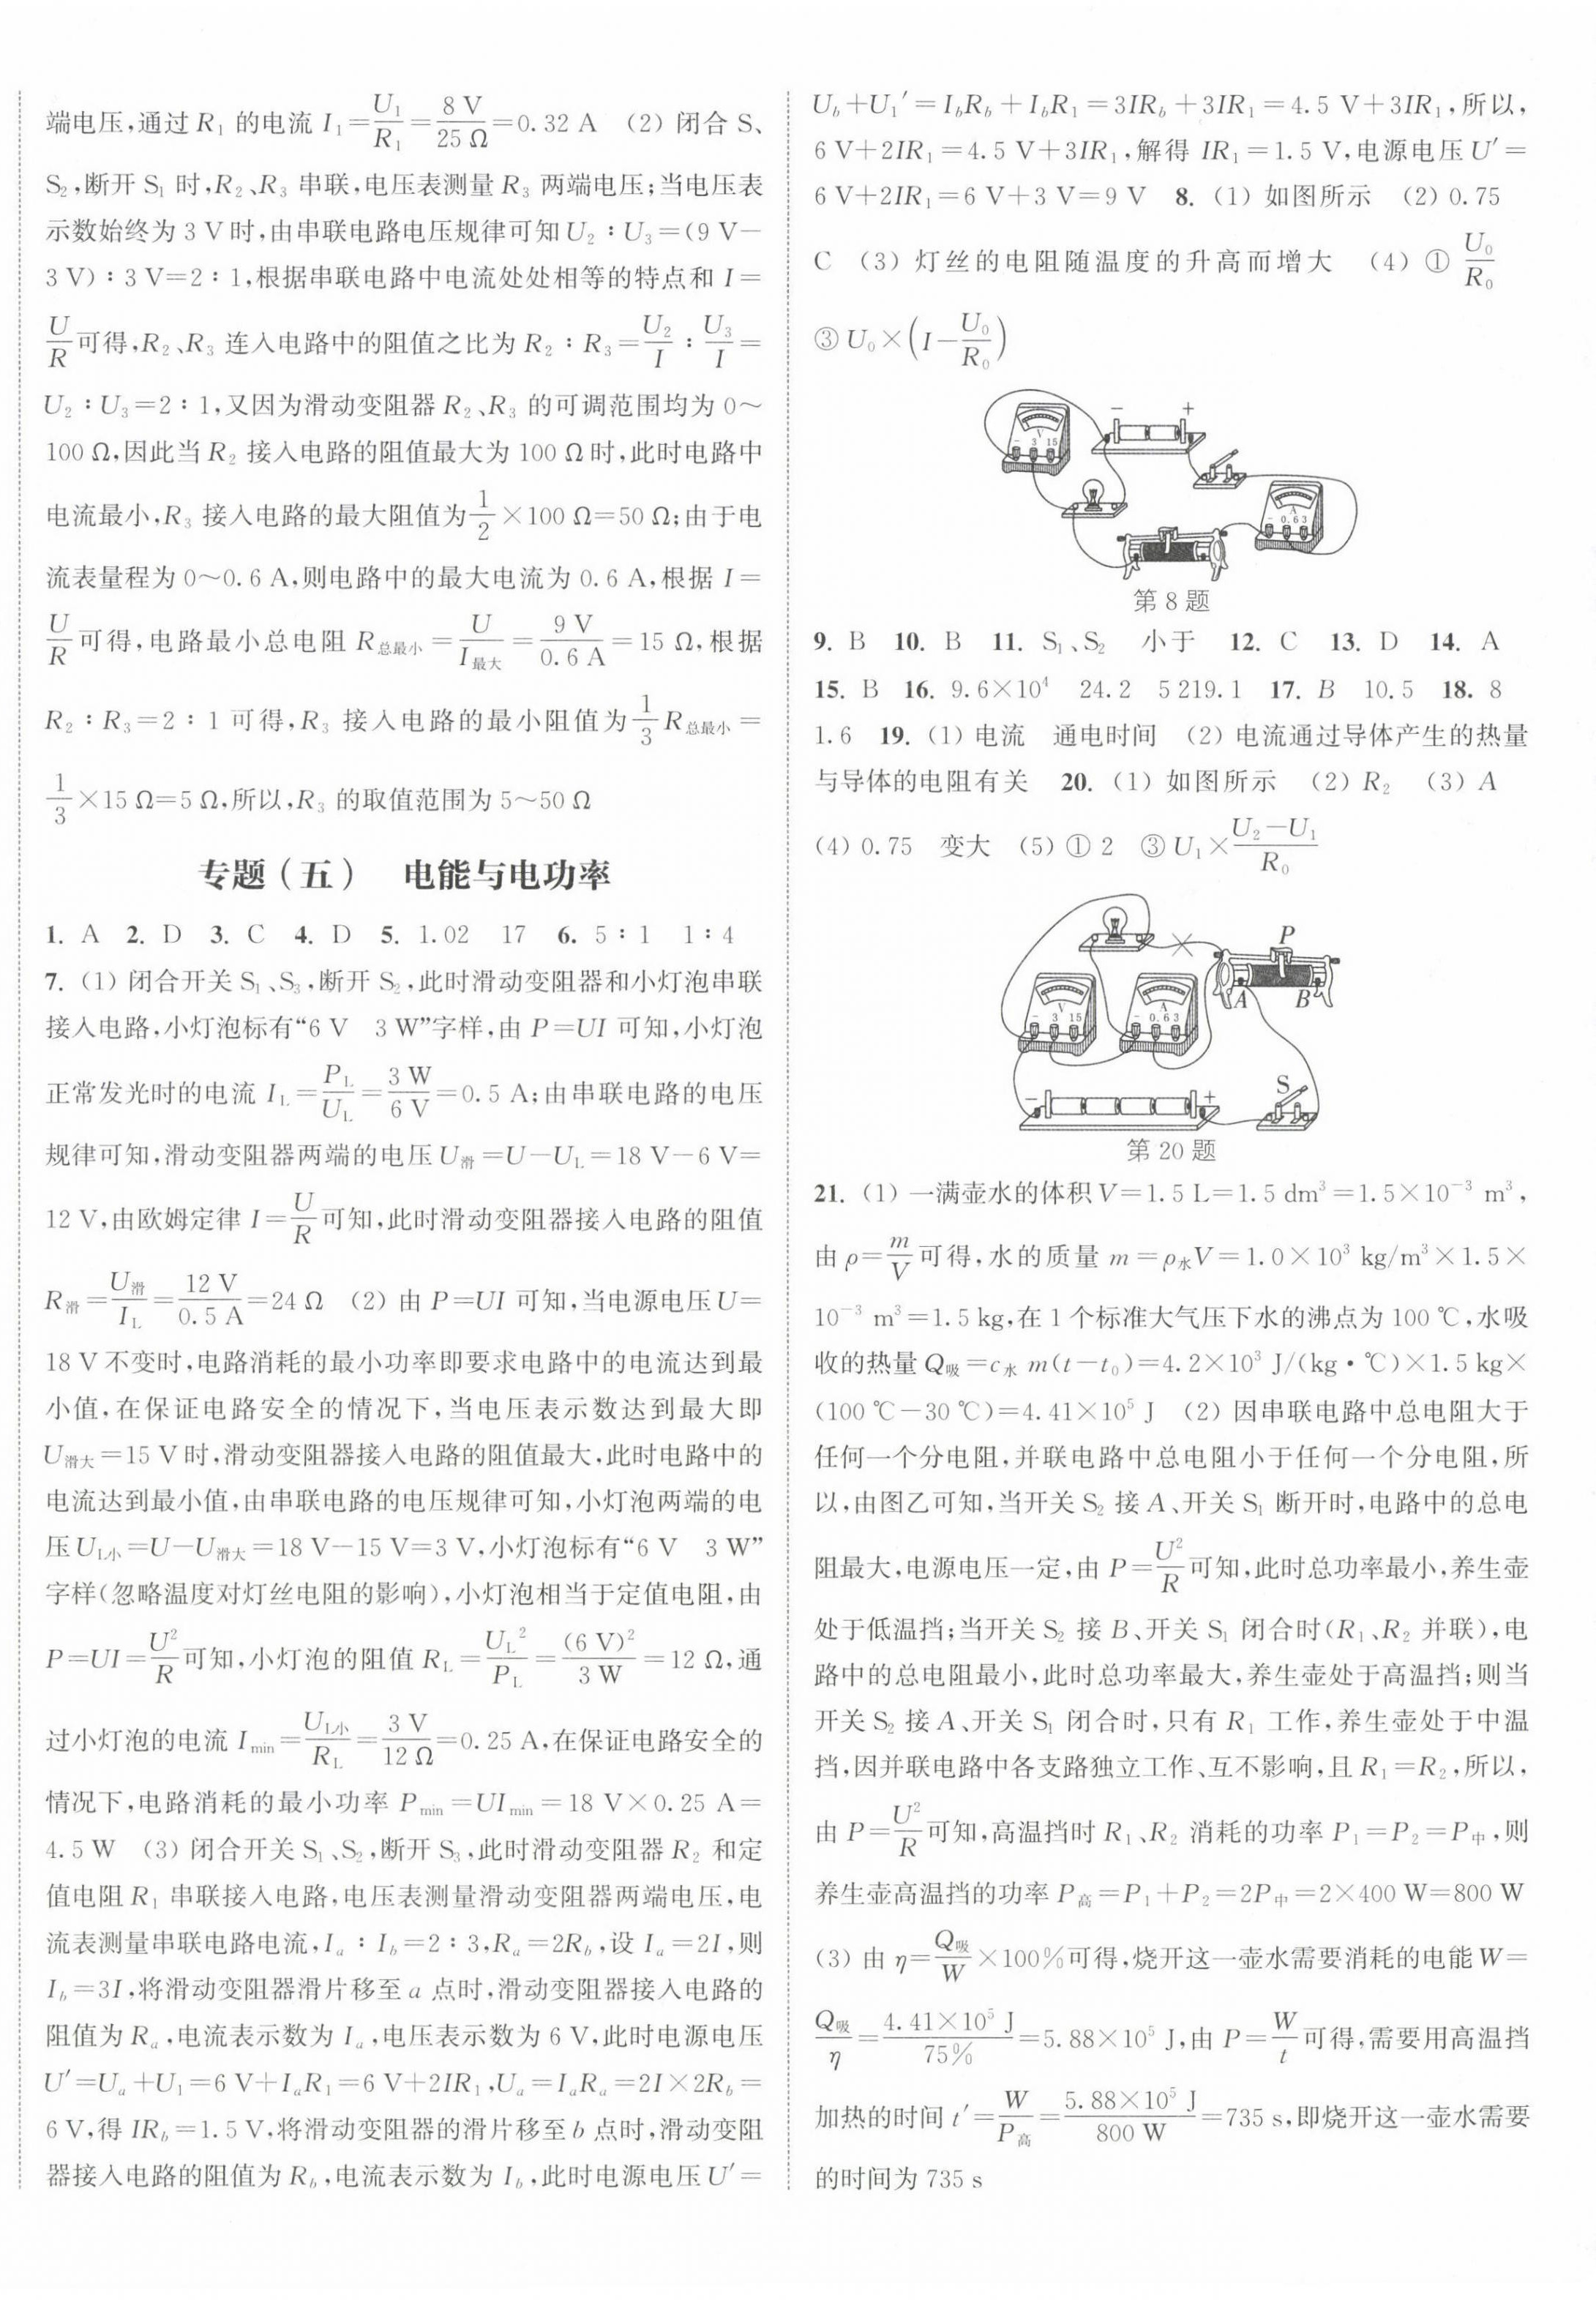 端电压,通过 R₁ 的电流 I₁=U₁/R₁=8 V/25 Ω=0.32 A (2) 闭合 S、
S₂,断开 S₁ 时,R₂、R₃ 串联,电压表测量 R₃ 两端电压;当电压表
示数始终为 3 V 时,由串联电路电压规律可知 U₂∶U₃=(9 V-
3 V)∶3 V=2∶1,根据串联电路中电流处处相等的特点和 I=
U/R可得,R₂、R₃ 连入电路中的阻值之比为 R₂∶R₃=U₂/I∶U₃/I=
U₂∶U₃=2∶1,又因为滑动变阻器 R₂、R₃ 的可调范围均为 0~
100 Ω,因此当 R₂ 接入电路的阻值最大为 100 Ω 时,此时电路中
电流最小,R₃ 接入电路的最大阻值为1/2×100 Ω=50 Ω;由于电
流表量程为 0~0.6 A,则电路中的最大电流为 0.6 A,根据 I=
U/R可得,电路最小总电阻 R总最小=U/I最大=9 V/0.6 A=15 Ω,根据
R₂∶R₃=2∶1 可得,R₃ 接入电路的最小阻值为1/3 R总最小=
1/3×15 Ω=5 Ω,所以,R₃ 的取值范围为 5~50 Ω
专题(五) 电能与电功率
1. A 2. D 3. C 4. D 5. 1.02 17 6. 5∶1 1∶4
7. (1) 闭合开关 S₁、S₃,断开 S₂,此时滑动变阻器和小灯泡串联
接入电路,小灯泡标有“6 V 3 W”字样,由 P=UI 可知,小灯泡
正常发光时的电流 I_L=P_L/U_L=3 W/6 V=0.5 A;由串联电路的电压
规律可知,滑动变阻器两端的电压 U滑=U-U_L=18 V-6 V=
12 V,由欧姆定律 I=U/R可知,此时滑动变阻器接入电路的阻值
R滑=U滑/I_L=12 V/0.5 A=24 Ω (2) 由 P=UI 可知,当电源电压 U=
18 V 不变时,电路消耗的最小功率即要求电路中的电流达到最
小值,在保证电路安全的情况下,当电压表示数达到最大即
U滑大=15 V 时,滑动变阻器接入电路的阻值最大,此时电路中的
电流达到最小值,由串联电路的电压规律可知,小灯泡两端的电
压 U_L小=U-U滑大=18 V-15 V=3 V,小灯泡标有“6 V 3 W”
字样(忽略温度对灯丝电阻的影响),小灯泡相当于定值电阻,由
P=UI=U²/R可知,小灯泡的阻值 R_L=U_L²/P_L=(6 V)²/3 W=12 Ω,通
过小灯泡的电流 I_min=U_L小/R_L=3 V/12 Ω=0.25 A,在保证电路安全的
情况下,电路消耗的最小功率 P_min=UI_min=18 V×0.25 A=
4.5 W (3) 闭合开关 S₁、S₂,断开 S₃,此时滑动变阻器 R₂ 和定
值电阻 R₁ 串联接入电路,电压表测量滑动变阻器两端电压,电
流表测量串联电路电流,I_a∶I_b=2∶3,R_a=2R_b,设 I_a=2I,则
I_b=3I,将滑动变阻器滑片移至 a 点时,滑动变阻器接入电路的
阻值为 R_a,电流表示数为 I_a,电压表示数为 6 V,此时电源电压
U′=U_a+U₁=6 V+I_aR₁=6 V+2IR₁,U_a=I_aR_a=2I×2R_b=
6 V,得 IR_b=1.5 V,将滑动变阻器的滑片移至 b 点时,滑动变阻
器接入电路的阻值为 R_b,电流表示数为 I_b,此时电源电压 U′=
U_b+U₁′=I_bR_b+I_bR₁=3IR_b+3IR₁=4.5 V+3IR₁,所以,
6 V+2IR₁=4.5 V+3IR₁,解得 IR₁=1.5 V,电源电压 U′=
6 V+2IR₁=6 V+3 V=9 V 8. (1) 如图所示 (2) 0.75
C (3) 灯丝的电阻随温度的升高而增大 (4) ① U₀/R₀
③ U₀×(I-U₀/R₀)
- +
V
- 3 15
A
- 0.6 3
第 8 题
9. B 10. B 11. S₁、S₂ 小于 12. C 13. D 14. A
15. B 16. 9.6×10⁴ 24.2 5 219.1 17. B 10.5 18. 8
1.6 19. (1) 电流 通电时间 (2) 电流通过导体产生的热量
与导体的电阻有关 20. (1) 如图所示 (2) R₂ (3) A
(4) 0.75 变大 (5) ① 2 ③ U₁×(U₂-U₁)/R₀
P
A B
V
- 3 15
A
- 0.6 3
- + S
第 20 题
21. (1) 一满壶水的体积 V=1.5 L=1.5 dm³=1.5×10⁻³ m³,
由 ρ=m/V可得,水的质量 m=ρ水V=1.0×10³ kg/m³×1.5×
10⁻³ m³=1.5 kg,在 1 个标准大气压下水的沸点为 100 ℃,水吸
收的热量 Q吸=c水 m(t-t₀)=4.2×10³ J/(kg·℃)×1.5 kg×
(100 ℃-30 ℃)=4.41×10⁵ J (2) 因串联电路中总电阻大于
任何一个分电阻,并联电路中总电阻小于任何一个分电阻,所
以,由图乙可知,当开关 S₂ 接 A、开关 S₁ 断开时,电路中的总电
阻最大,电源电压一定,由 P=U²/R可知,此时总功率最小,养生壶
处于低温挡;当开关 S₂ 接 B、开关 S₁ 闭合时(R₁、R₂ 并联),电
路中的总电阻最小,此时总功率最大,养生壶处于高温挡;则当
开关 S₂ 接 A、开关 S₁ 闭合时,只有 R₁ 工作,养生壶处于中温
挡,因并联电路中各支路独立工作、互不影响,且 R₁=R₂,所以,
由 P=U²/R可知,高温挡时 R₁、R₂ 消耗的功率 P₁=P₂=P中,则
养生壶高温挡的功率 P高=P₁+P₂=2P中=2×400 W=800 W
(3) 由 η=Q吸/W×100%可得,烧开这一壶水需要消耗的电能 W=
Q吸/η=4.41×10⁵ J/75%=5.88×10⁵ J,由 P=W/t可得,需要用高温挡
加热的时间 t′=W/P高=5.88×10⁵ J/800 W=735 s,即烧开这一壶水需要
的时间为 735 s